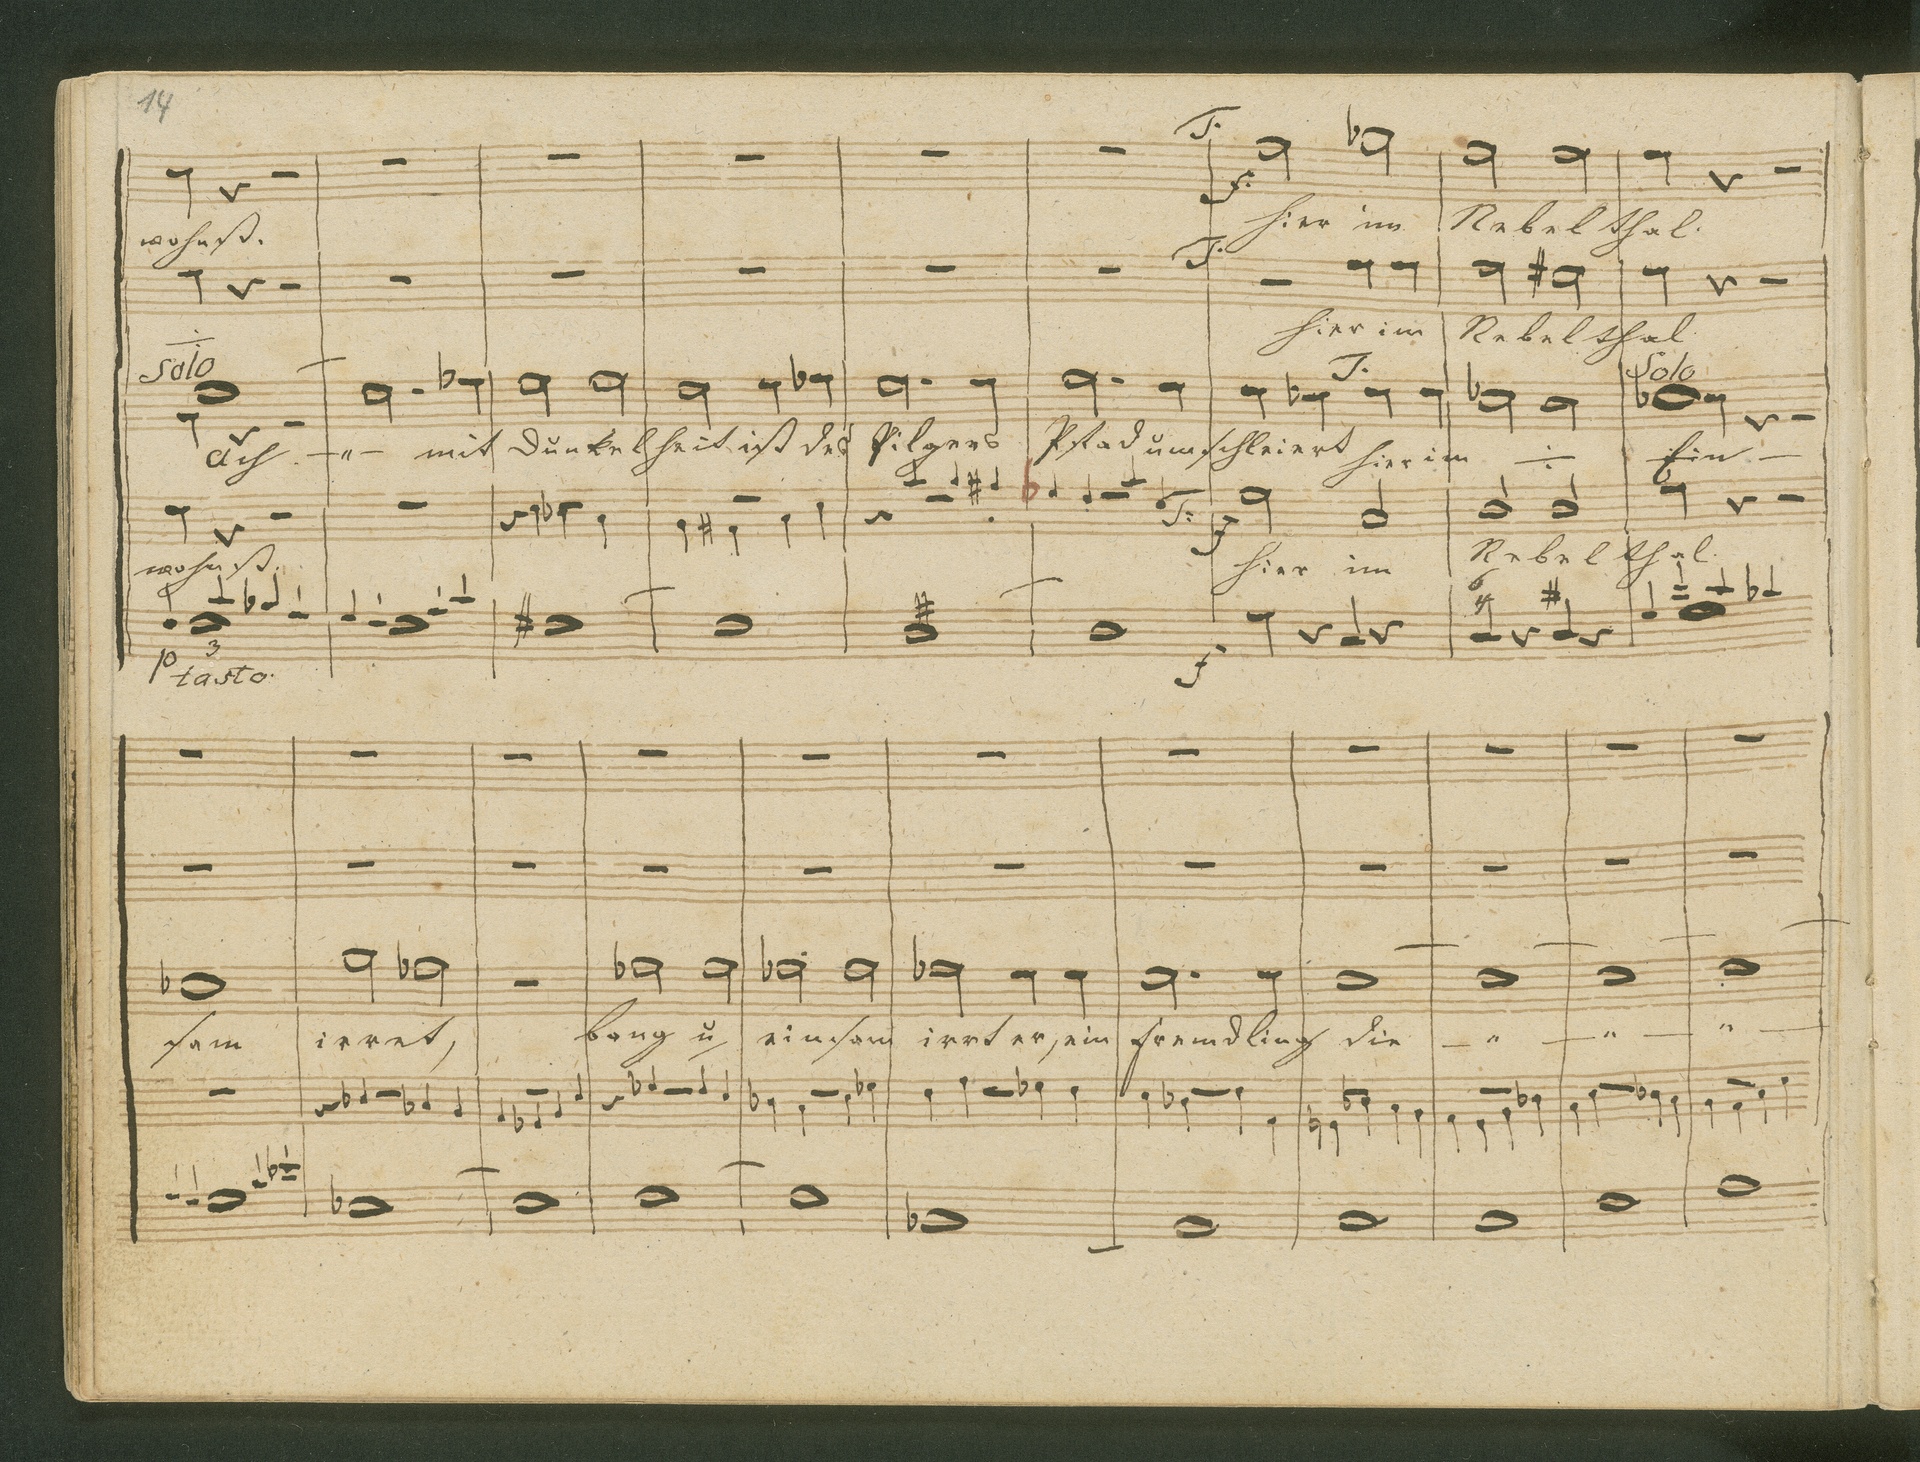 14
T.
f.
hier im Nebel thal.
wohnst.
T.
hier im Nebel thal
Solo
T.
Solo
ach -"- mit Dunkelheit ist des Pilgers Pfad umschleiert hier im -:- Ein -
T.
f
wohnst.
hier im Nebel thal.
6
4
3
p tasto.
f.
sam irret, bang u einsam irrt er, ein fremdling die - " - " - " -